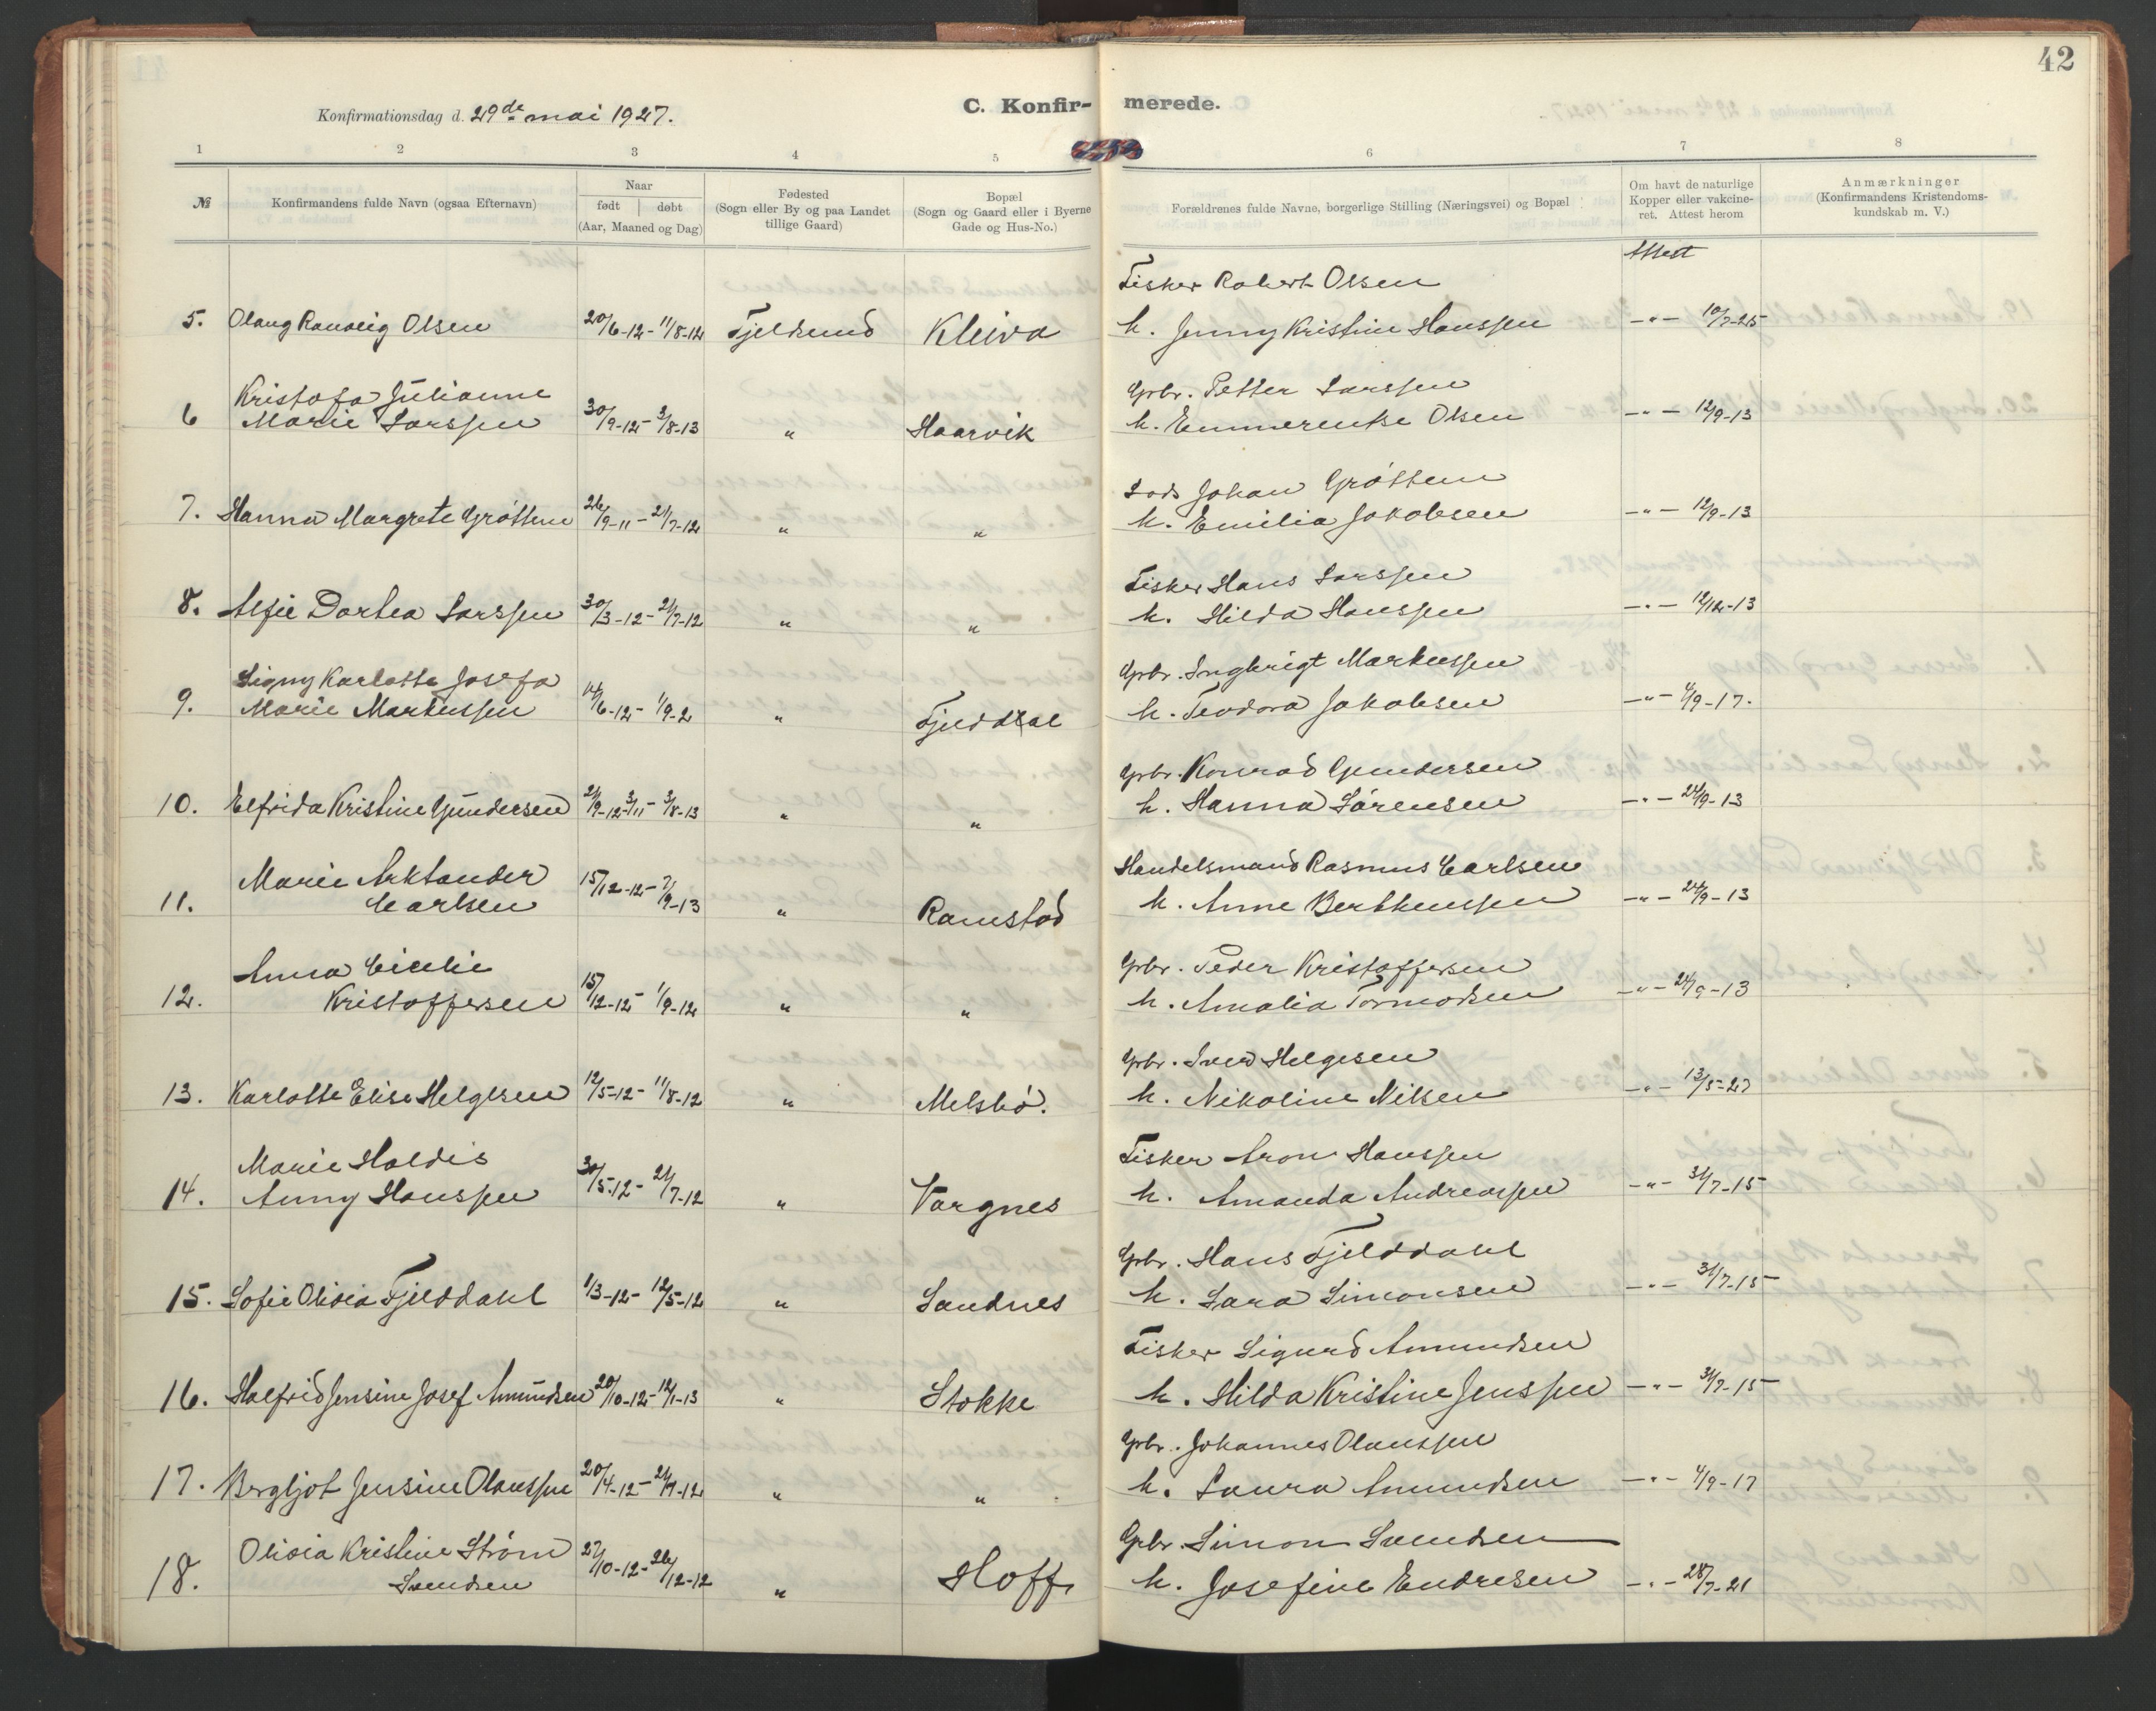 42
Konfirmationsdag d. 29de mai 1927.
C. Konfir- merede.
1 2 3 4 5 6 7 8
№
Konfirmandens fulde Navn (ogsaa Efternavn)
Naar
født | døbt
(Aar, Maaned og Dag)
Fødested
(Sogn eller By og paa Landet
tillige Gaard)
Bopæl
(Sogn og Gaard eller i Byerne
Gade og Hus-No.)
Forældrenes fulde Navne, borgerlige Stilling (Næringsvei) og Bopæl
Om havt de naturlige
Kopper eller vakcine-
ret. Attest herom
Anmærkninger
(Konfirmandens Kristendoms-
kundskab m. V.)
Attest
Fisker Robert Olsen
5. Olaug Ranveig Olsen 20/6-12 - 11/8-12 Fjeldsund Kleiva h. Jenny Kristine Hanssen -"- 10/7-25
Kristofa Julianne Gbr. Petter Larssen
6 Marie Larssen 30/9-12 - 3/8-13 " Haarvik h. Emmerentse Olsen -"- 12/9-13
Lods Johan Grøttem
7. Hanna Margrete Grøttem 26/9-11 - 21/7-12 " " h. Emilia Jakobsen -"- 12/9-13
Fisker Hans Larssen
8. Alfie Dortea Larssen 30/3-12 - 21/7-12 " " h. Hilda Hanssen -"- 12/12-13
Signy Karlotte Josefa Gbr. Ingbrigt Markussen
9. Marie Markussen 14/6-12 - 1/9-2 " Fjelddal h. Teodora Jakobsen -"- 4/9-17.
Gbr. Konrad Gundersen
10. Elfrida Kristine Gundersen 21/9-12 3/11 - 3/8-13 " " h. Hanna Sørensen -"- 24/9-13
Marie Arktander Handelsmand Rasmus Carlsen
11. Carlsen 15/12-12 - 7/9-13 " Ramstad h. Anne Bertheussen -"- 24/9-13
Anna Cicelie Gbr. Peder Kristoffersen
12. Kristoffersen 15/12-12 - 1/9-12 " " h. Amalia Tormodsen -"- 24/9-13
Gbr. Sverd Helgesen
13. Karlotte Elise Helgesen 12/5-12 - 11/8-12 " Melsbø. h. Nikoline Nilsen -"- 13/5-27
Marie Haldis Fisker Aron Hanssen
14. Anny Hanssen 30/5-12 - 21/7-12 " Vargnes h. Amanda Andreassen -"- 31/7-15
Gbr. Hans Fjelddahl
15. Sofie Olivia Fjelddahl 1/3-12 - 12/5-12 " Sandnes h. Sara Simonsen -"- 31/7-15
Fisker Sigurd Amundsen
16. Halfrid Jensine Josef Amundsen 20/10-12 - 12/1-13 " Stokke h. Hilda Kristine Jenssen -"- 31/7-15
Gbr. Johannes Olaussen
17. Bergljot Jensine Olaussen 20/4-12 - 21/7-12 " " h. Laura Amundsen -"- 4/9-17
Olivia Kristine Strøm Gbr. Simon Svendsen
18. Svendsen 27/10-12 - 26/12-12 " Hoff h. Josefine Endresen -"- 28/7-21